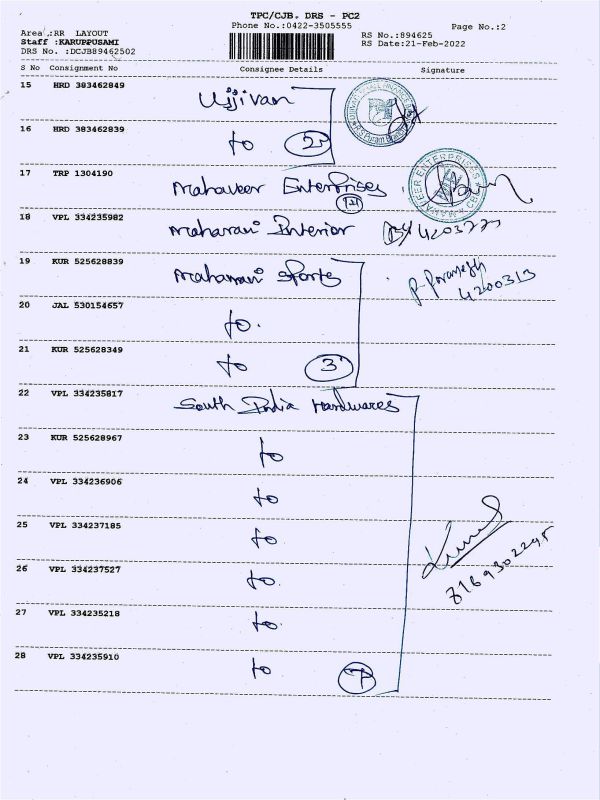 TPC/CJB. DRS - PC2
Phone No.:0422-3505555
Page No.:2
Area :RR LAYOUT
Staff :KARUPPUSAMI
DRS No. :DCJB89462502
RS No.:894625
RS Date:21-Feb-2022
S No Consignment No Consignee Details Signature
15 HRD 383462849 Ujjivan
16 HRD 383462839 to 2
17 TRP 1304190 Mahaveer Enterprises
18 VPL 334235982 Maharani Interior 4203777
19 KUR 525628839 Maharani Sports
4200313
20 JAL 530154657 to.
21 KUR 525628349 to 3
22 VPL 334235817 South India Hardwares
23 KUR 525628967 to
24 VPL 334236906 to
25 VPL 334237185 to
26 VPL 334237527 to.
8169302295
27 VPL 334235218 to.
28 VPL 334235910 to 7